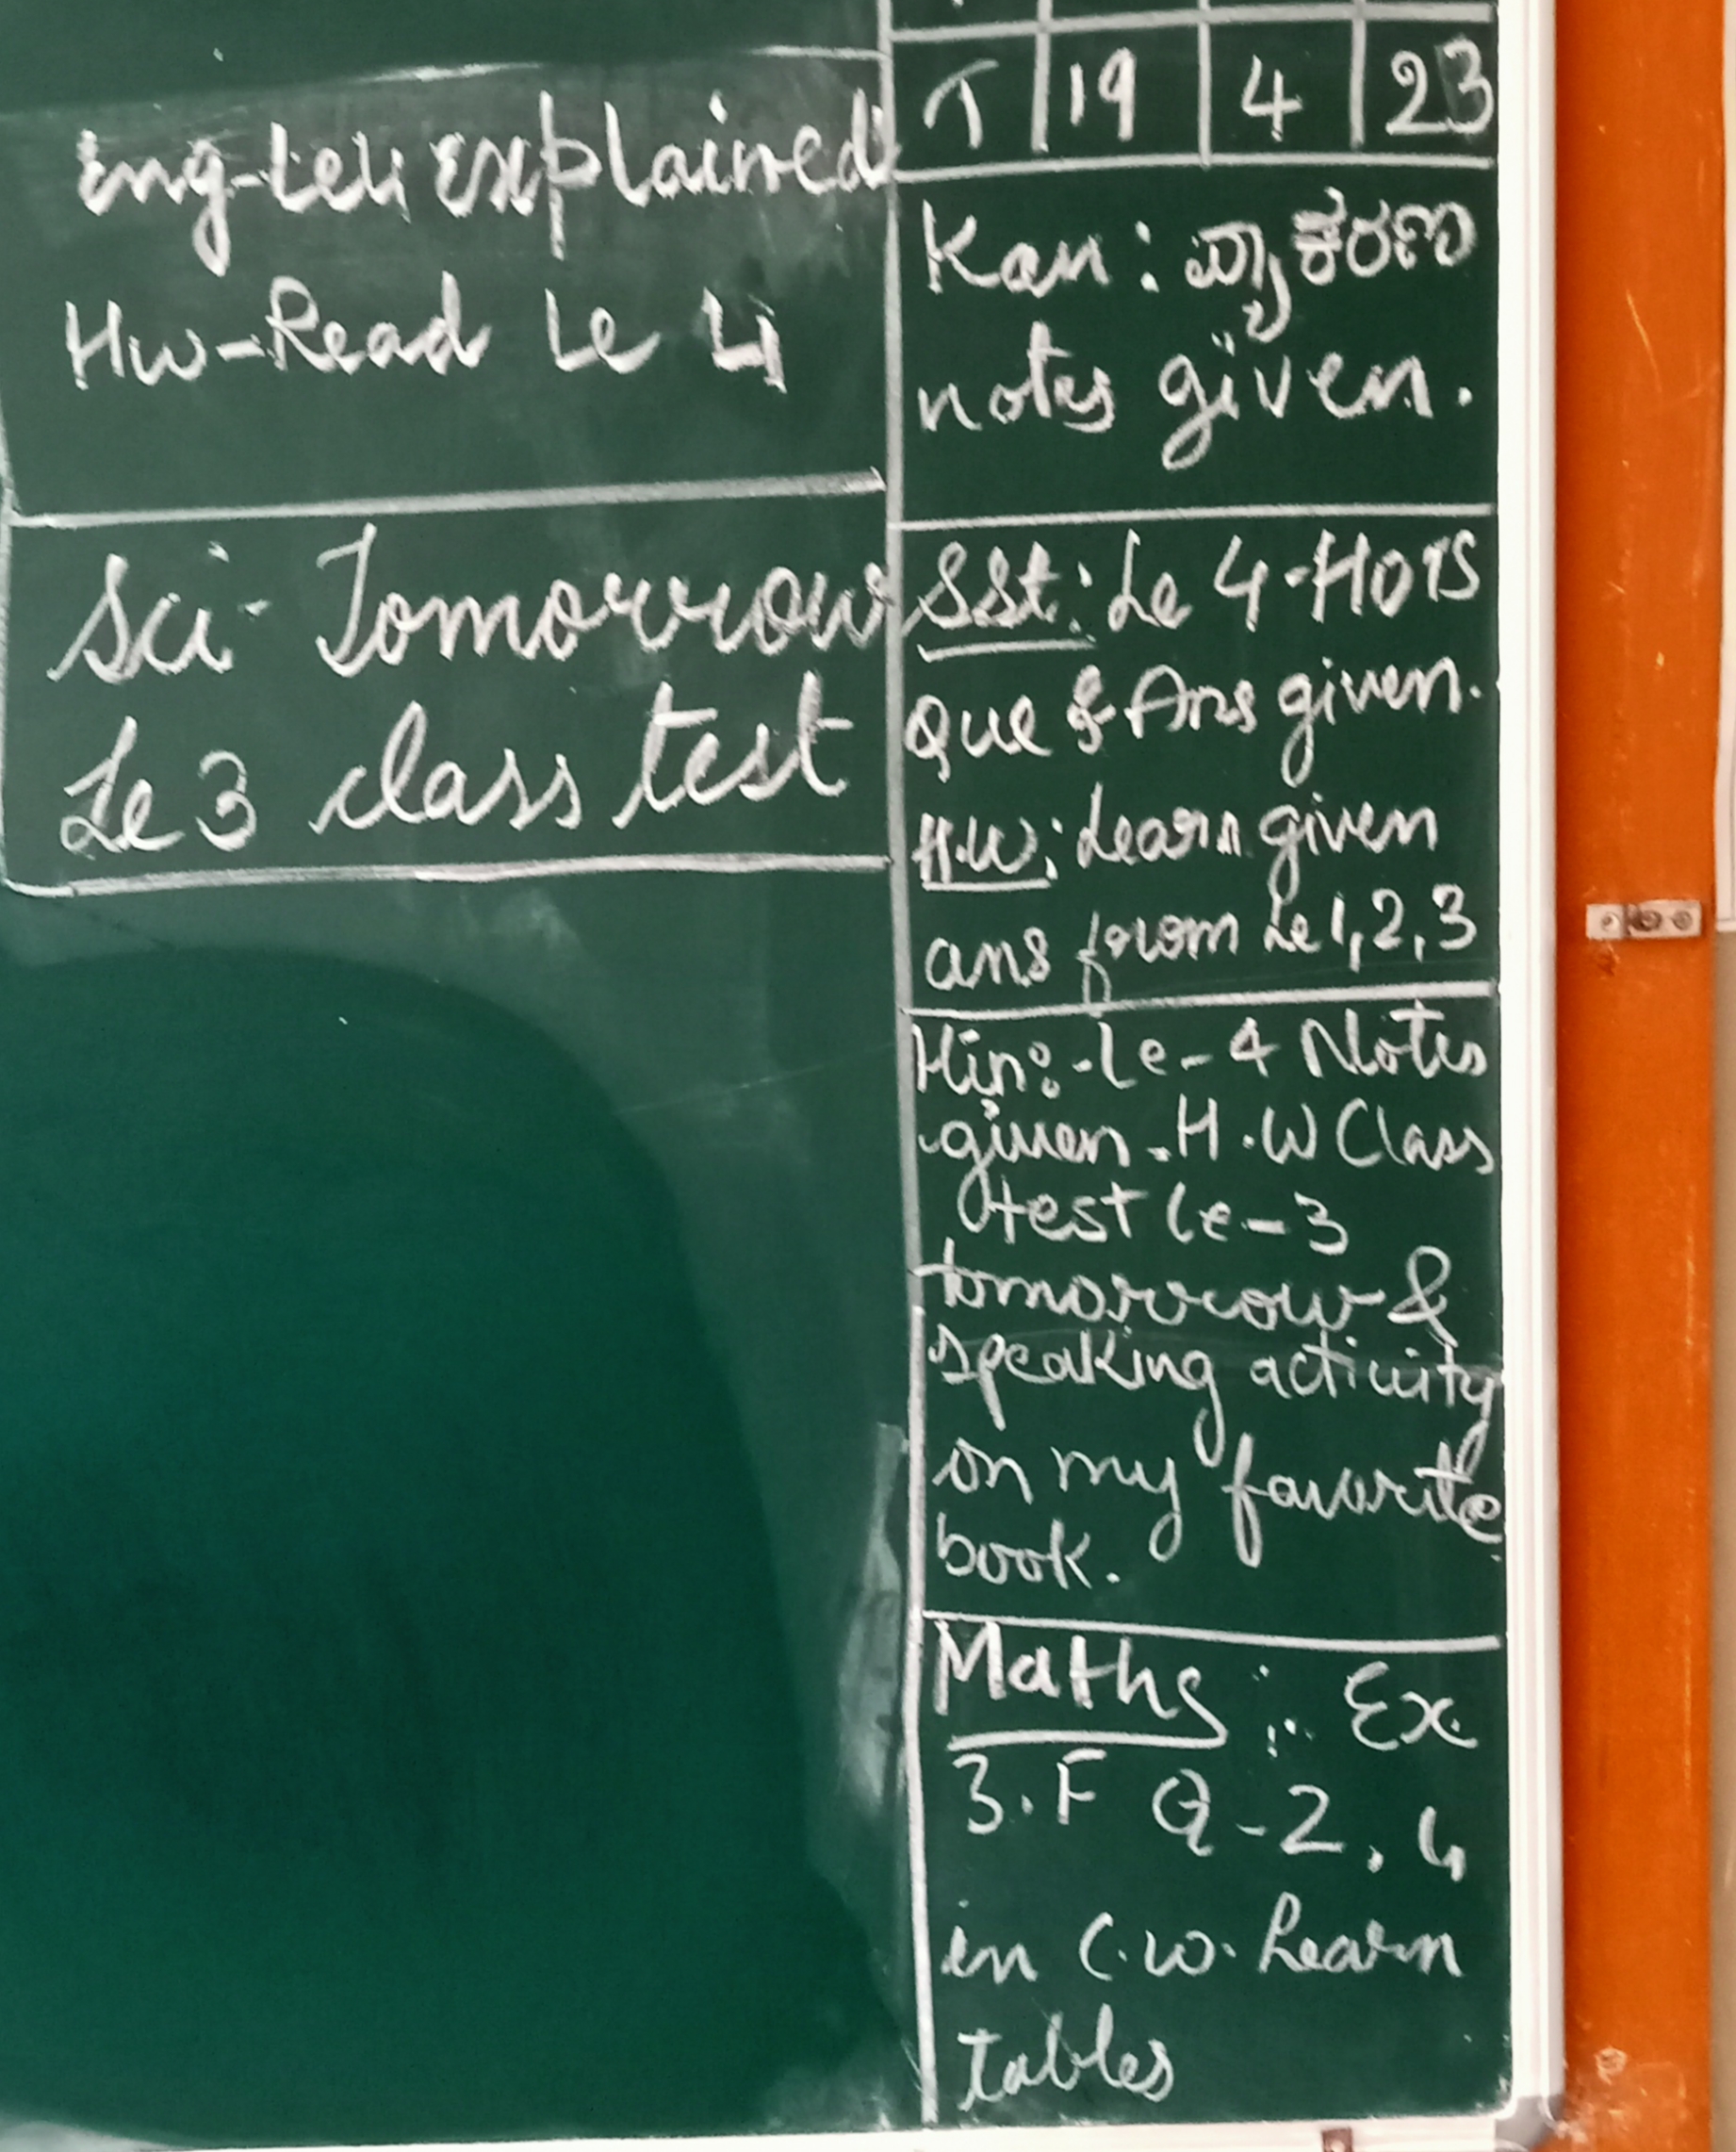 Eng-Le4 explained
Hw-Read Le 4
Sci- Tomorrow
Le 3 class test
T 19 4 23
Kan: ವ್ಯಾಕರಣ
notes given.
SSt: Le 4-HOTS
Que & Ans given.
H.W: Learn given
ans from Le 1, 2, 3
Hin:-Le-4 Notes
given-H.W Class
test Le-3
tomorrow &
speaking activity
on my favorite
book.
Maths:- Ex
3.F Q-2, 4
in C.W. Learn
Tables